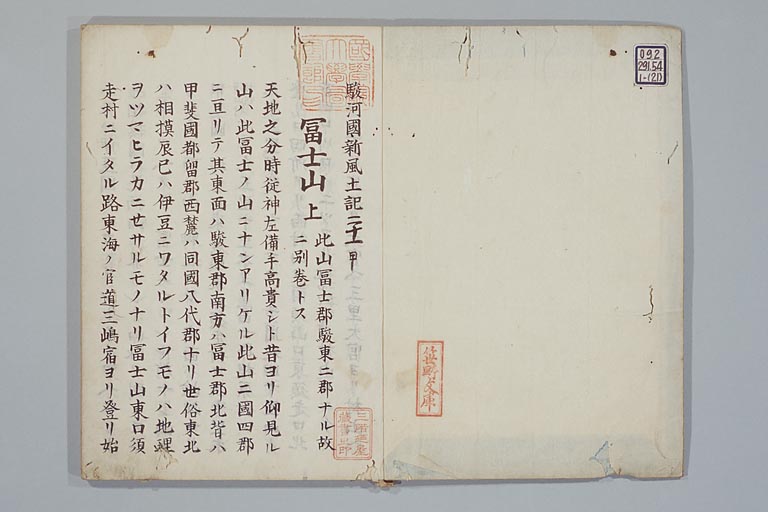 駿河國新風土記二十 甲
冨士山 上
此山冨士郡駿東二郡ナル故
ニ別巻トス
天地之分時従神左備手高貴シト昔ヨリ仰見ル
山ハ此冨士ノ山ニナンアリケル此山二國四郡
ニ亘リテ其東面ハ駿東郡南方ハ冨士郡北背ハ
甲斐國都留郡西麓ハ同國八代郡ナリ世俗東北
ハ相摸辰巳ハ伊豆ニワタルトイフモノハ地理
ヲツマヒラカニセサルモノナリ冨士山東口須
走村ニイタル路東海ノ官道三嶋宿ヨリ登リ始
092
291.54
1-(21)